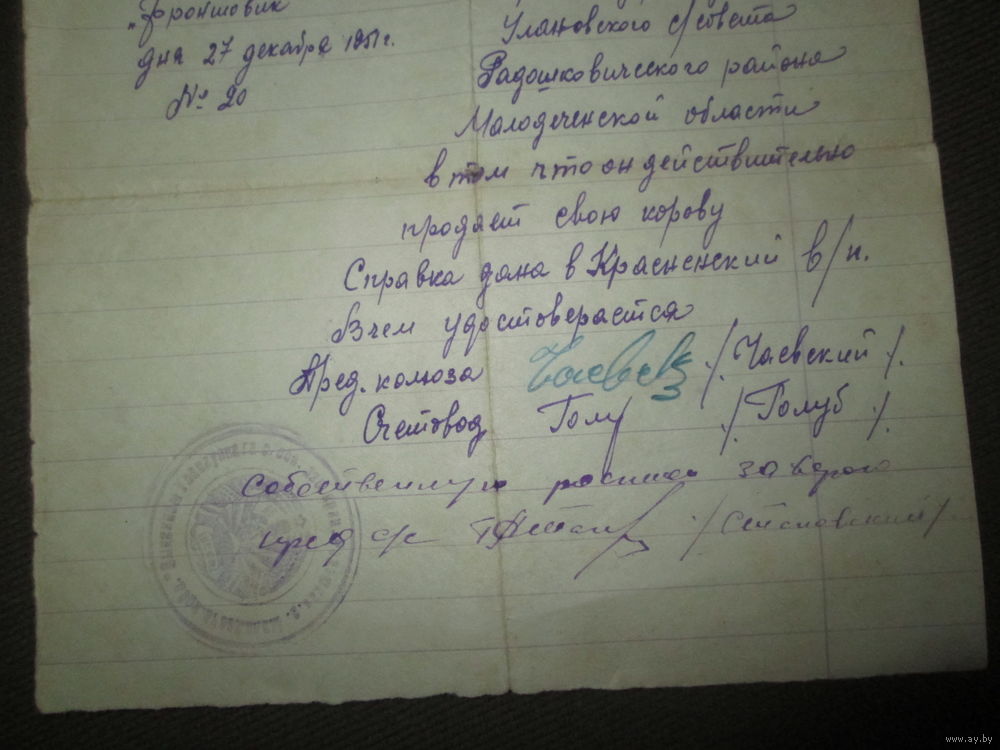 „Фронтовик
дня 27 декабря 1951г.
№ 20
Улановского с/совета
Радошковичского района
Малодеченской области
в том что он действительно
продает свою корову
Справка дана в Красненский в/п.
В чем удостоверается
Пред. колхоза /Чаевский/.
Счетовод Голуб /Голуб/.
Собственную роспись заверяю
пред с/с
www.ay.by